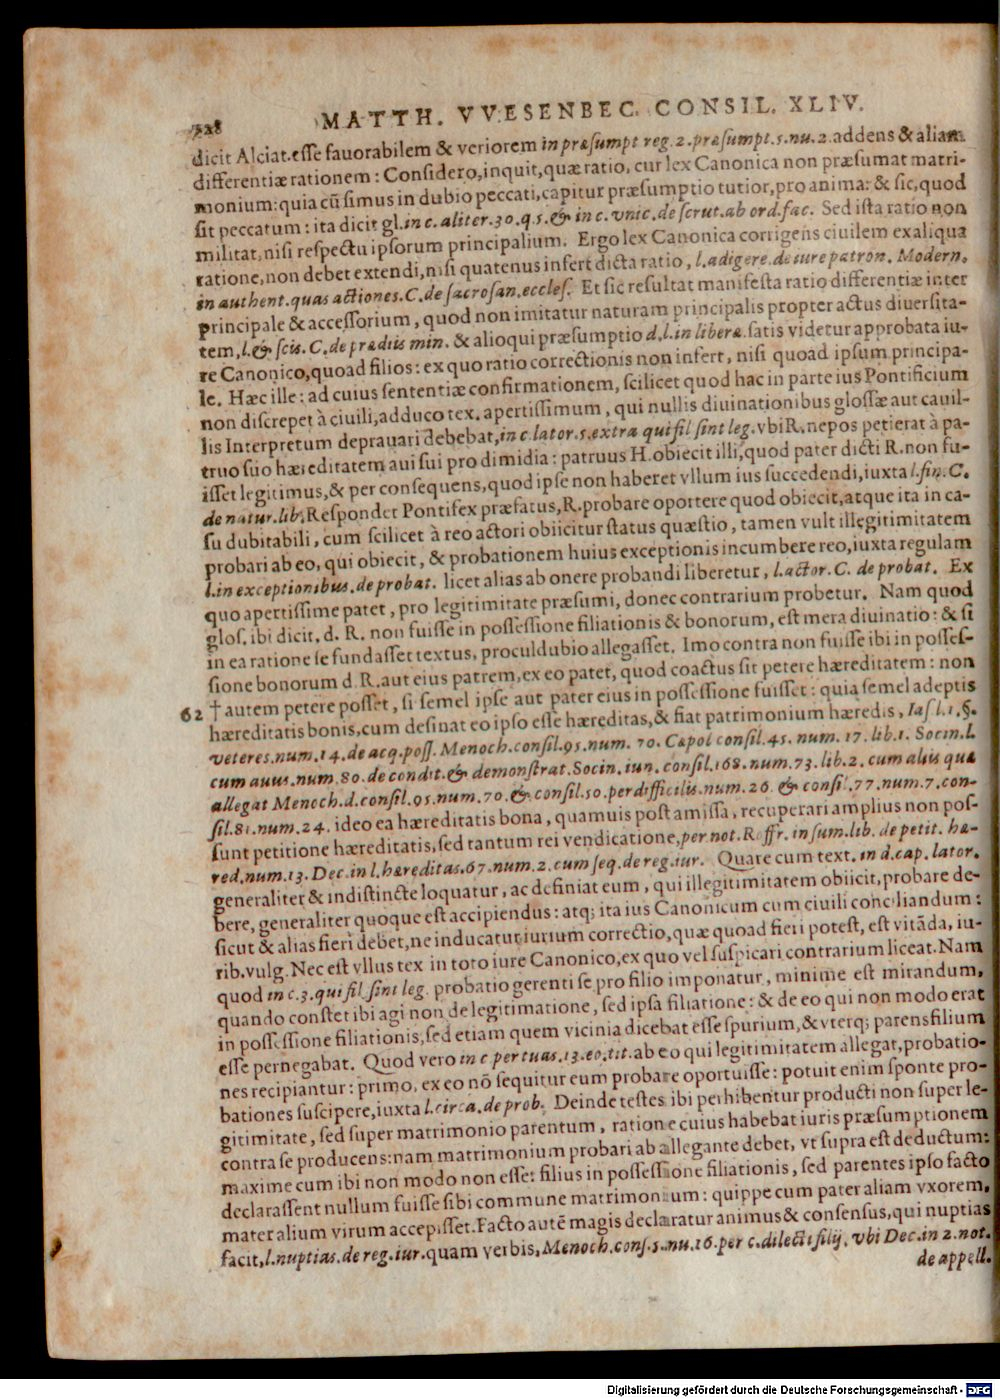 328 MATTH. VVESENBEC. CONSIL. XLIV.
dicit Alciat. esse fauorabilem & veriorem in præsumpt reg. 2. præsumpt. 5. nu. 2. addens & aliam
differentiæ rationem: Considero, inquit, quæ ratio, cur lex Canonica non præsumat matri-
monium: quia cũ simus in dubio peccati, capitur præsumptio tutior, pro anima: & sic, quod
sit peccatum: ita dicit gl. in c. aliter. 30. q. 5. & in c. vnic. de scrut. ab ord. fac. Sed ista ratio non
militat, nisi respectu ipsorum principalium. Ergo lex Canonica corrigens ciuilem ex aliqua
ratione, non debet extendi, nisi quatenus infert dicta ratio, l. adigere. de iure patron. Modern.
in authent. quas actiones. C. de sacrosan. eccles. Et sic resultat manifesta ratio differentiæ inter
principale & accessorium, quod non imitatur naturam principalis propter actus diuersita-
tem, l. & scis. C. de prædiis min. & alioqui præsumptio d. l. in liberæ. satis videtur approbata iu-
re Canonico, quoad filios: ex quo ratio correctionis non infert, nisi quoad ipsum principa-
le. Hæc ille: ad cuius sententiæ confirmationem, scilicet quod hac in parte ius Pontificium
non discrepet à ciuili, adduco tex. apertissimum, qui nullis diuinationibus glossæ aut cauil-
lis Interpretum deprauari debebat, in c. lator. 5. extra qui fil sint leg. vbi R. nepos petierat à pa-
truo suo hæreditatem aui sui pro dimidia: patruus H. obiecit illi, quod pater dicti R. non fu-
isset legitimus, & per consequens, quod ipse non haberet vllum ius succedendi, iuxta l. fin. C.
de natur. lib. Respondet Pontifex præfatus, R. probare oportere quod obiecit, atque ita in ca-
su dubitabili, cum scilicet à reo actori obiicitur status quæstio, tamen vult illegitimitatem
probari ab eo, qui obiecit, & probationem huius exceptionis incumbere reo, iuxta regulam
l. in exceptionibus. de probat. licet alias ab onere probandi liberetur, l. actor. C. de probat. Ex
quo apertissime patet, pro legitimitate præsumi, donec contrarium probetur. Nam quod
glos. ibi dicit, d. R. non fuisse in possessione filiationis & bonorum, est mera diuinatio: & si
in ea ratione se fundasset textus, proculdubio allegasset. Imo contra non fuisse ibi in posses-
sione bonorum d. R. aut eius patrem, ex eo patet, quod coactus sit petere hæreditatem: non
62 † autem petere posset, si semel ipse aut pater eius in possessione fuisset: quia semel adeptis
hæreditatis bonis, cum desinat eo ipso esse hæreditas, & fiat patrimonium hæredis, Ias l. 1. §.
veteres. num. 14. de acq. poss. Menoch. consil. 95. num. 70. Cæpol consil. 45. num. 17. lib. 1. Socin. l.
cum auus. num. 80. de condit. & demonstrat. Socin. iun. consil. 168. num. 73. lib. 2. cum aliis quæ
allegat Menoch. d. consil. 95. num. 70. & consil. 50. per difficilis. num. 26. & consil. 77. num. 7. con-
sil. 81. num. 24. ideo ea hæreditatis bona, quamuis post amissa, recuperari amplius non pos-
sunt petitione hæreditatis, sed tantum rei vendicatione, per not. Roffr. in sum. lib. de petit. hæ-
red. num. 13. Dec. in l. hæreditas. 67. num. 2. cum seq. de reg. iur. Quare cum text. in d. cap. lator.
generaliter & indistincte loquatur, ac definiat eum, qui illegitimitatem obiicit, probare de-
bere, generaliter quoque est accipiendus: atq; ita ius Canonicum cum ciuili conciliandum:
sicut & alias fieri debet, ne inducatur iurium correctio, quæ quoad fieri potest, est vitãda, iu-
rib. vulg. Nec est vllus tex in toto iure Canonico, ex quo vel suspicari contrarium liceat. Nam
quod in c. 3. qui fil. sint leg. probatio gerenti se pro filio imponatur, minime est mirandum,
quando constet ibi agi non de legitimatione, sed ipsa filiatione: & de eo qui non modo erat
in possessione filiationis, sed etiam quem vicinia dicebat esse spurium, & vterq; parens filium
esse pernegabat. Quod vero in c per tuas. 13. eo. tit. ab eo qui legitimitatem allegat, probatio-
nes recipiantur: primo, ex eo nõ sequitur eum probare oportuisse: potuit enim sponte pro-
bationes suscipere, iuxta l. circa. de prob. Deinde testes ibi perhibentur producti non super le-
gitimitate, sed super matrimonio parentum, ratione cuius habebat iuris præsumptionem
contra se producens: nam matrimonium probari ab allegante debet, vt supra est deductum:
maxime cum ibi non modo non esset filius in possessione filiationis, sed parentes ipso facto
declarassent nullum fuisse sibi commune matrimonium: quippe cum pater aliam vxorem,
mater alium virum accepisset. Facto autẽ magis declaratur animus & consensus, qui nuptias
facit, l. nuptias. de reg. iur. quam verbis, Menoch. cons. 5. nu. 16. per c. dilecti filij. vbi Dec. in 2. not.
de appell.
Digitalisierung gefördert durch die Deutsche Forschungsgemeinschaft - DFG